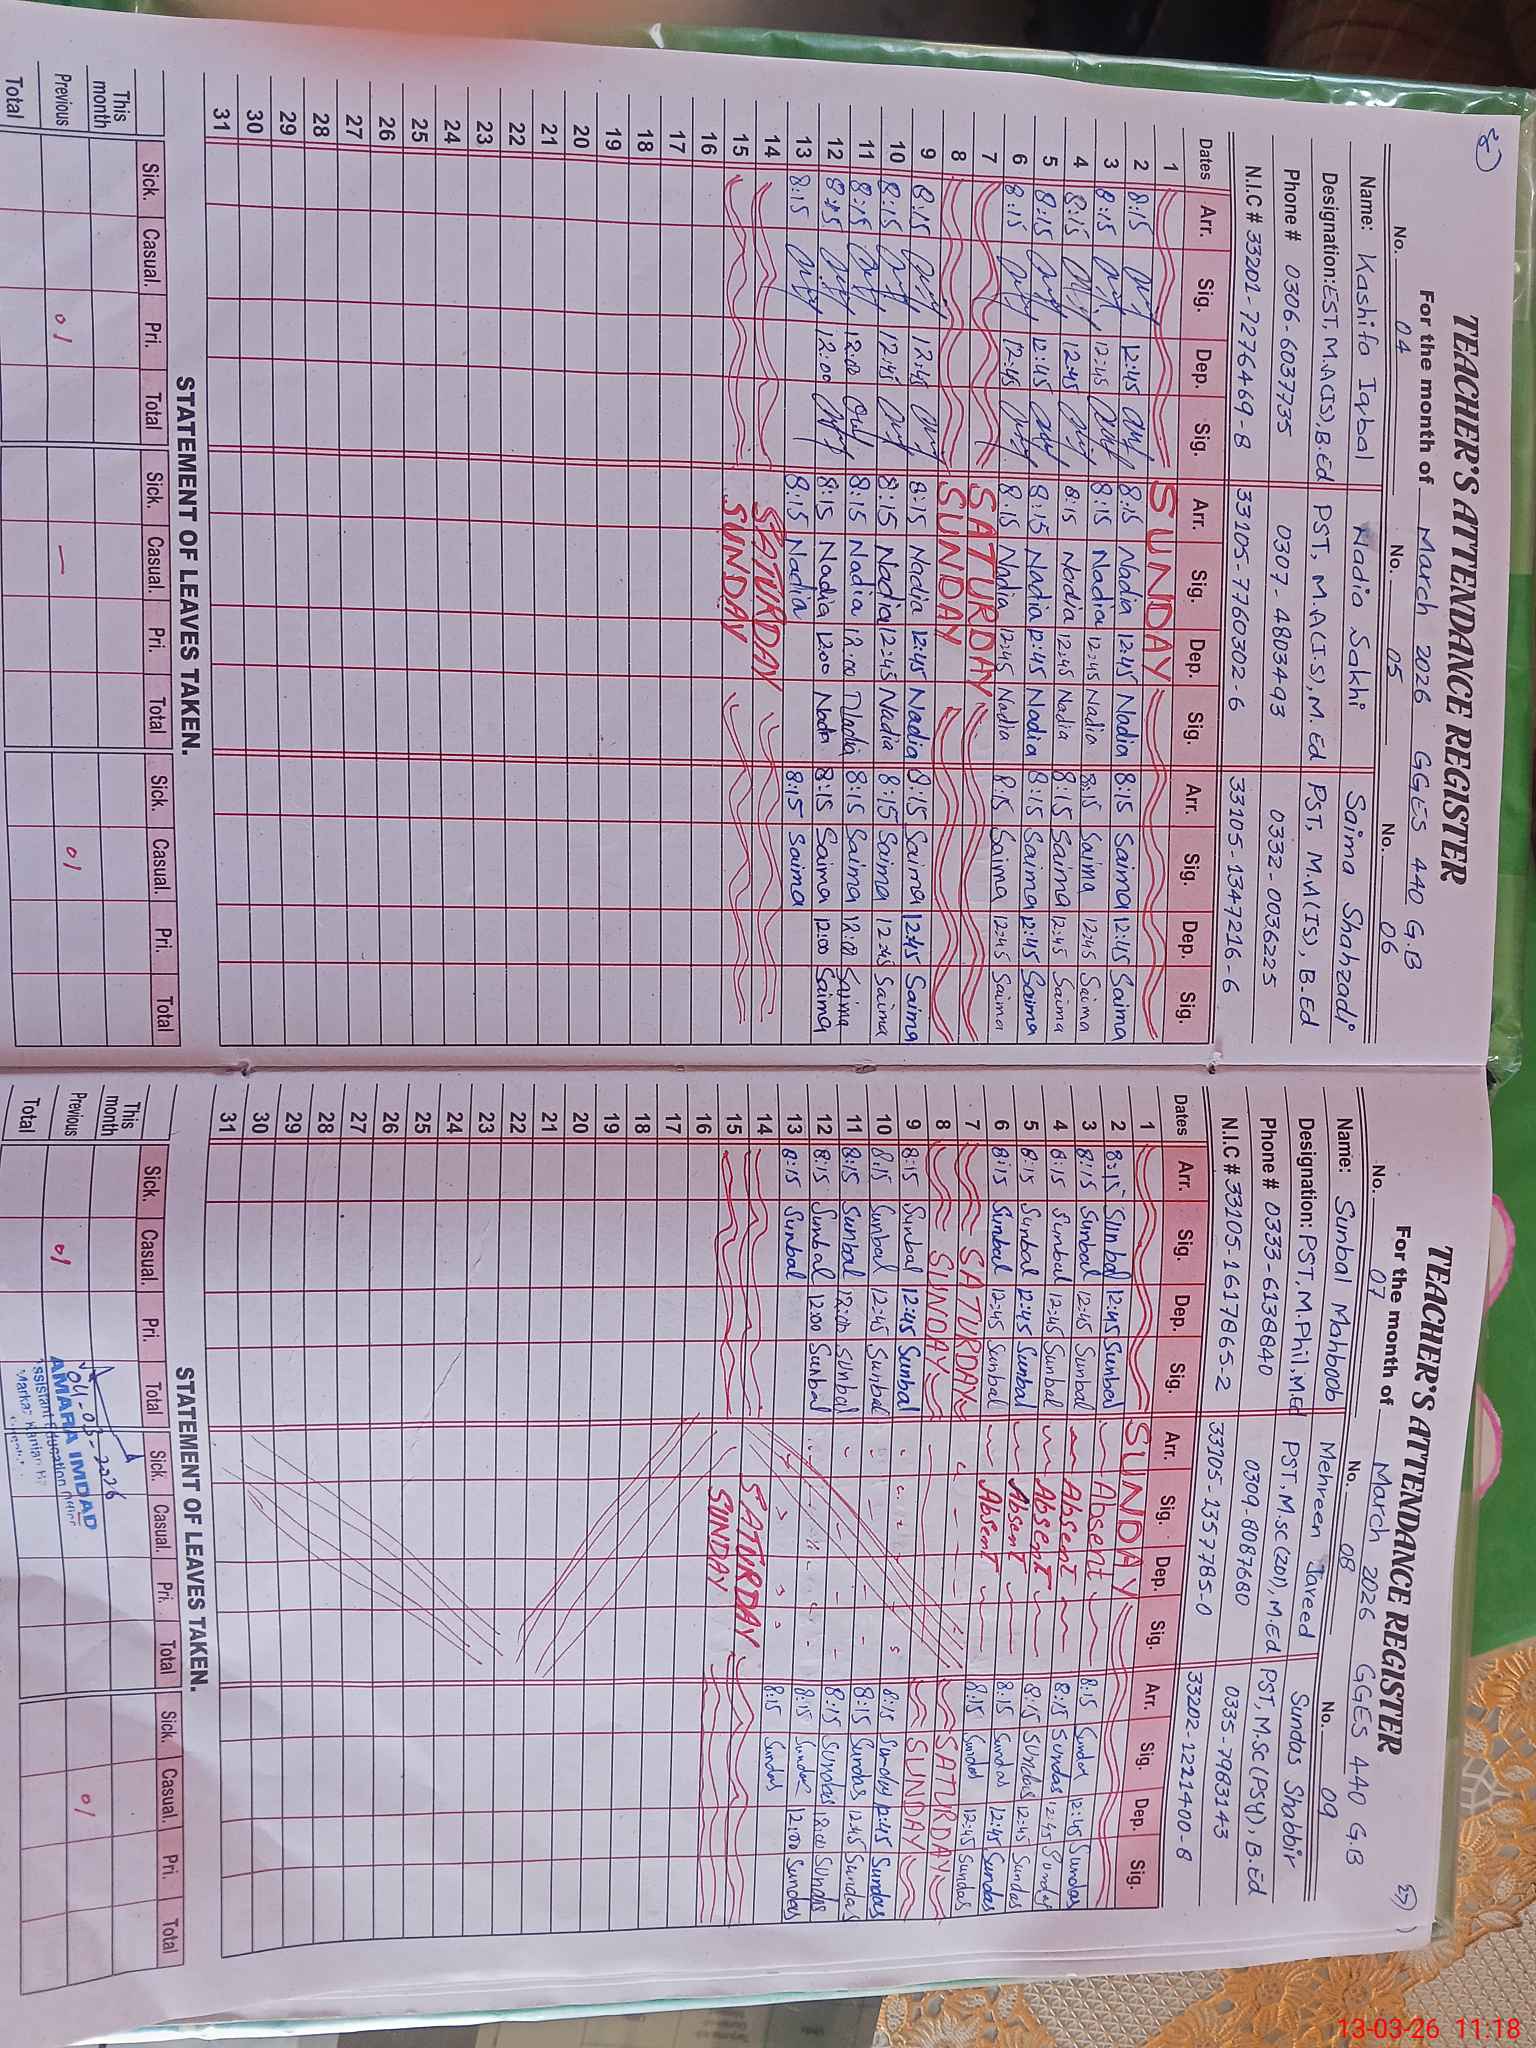 TEACHER'S ATTENDANCE REGISTER
For the month of March 2026 GGES 440 G.B
No. 04 No. 05 No. 06
Name: Kashifa Iqbal Nadia Sakhi Saima Shahzadi
Designation: EST, M.A(IS), B.Ed PST, M.A(I.S), M.Ed PST, M.A(IS), B.Ed
Phone # 0306-6037735 0307-4803493 0332-0036225
N.I.C # 33201-7276469-8 33105-7760302-6 33105-1347216-6
Dates Arr. Sig. Dep. Sig. Arr. Sig. Dep. Sig. Arr. Sig. Dep. Sig.
1 SUNDAY
2 8:15 12:45 8:15 Nadia 12:45 Nadia 8:15 Saima 12:45 Saima
3 8:15 12:45 8:15 Nadia 12:45 Nadia 8:15 Saima 12:45 Saima
4 8:15 12:45 8:15 Nadia 12:45 Nadia 8:15 Saima 12:45 Saima
5 8:15 12:45 8:15 Nadia 12:45 Nadia 8:15 Saima 12:45 Saima
6 8:15 12:45 8:15 Nadia 12:45 Nadia 8:15 Saima 12:45 Saima
7 SATURDAY
8 SUNDAY
9 8:15 12:45 8:15 Nadia 12:45 Nadia 8:15 Saima 12:45 Saima
10 8:15 12:45 8:15 Nadia 12:45 Nadia 8:15 Saima 12:45 Saima
11 8:15 12:00 8:15 Nadia 12:00 Nadia 8:15 Saima 12:00 Saima
12 8:15 12:00 8:15 Nadia 12:00 Nadia 8:15 Saima 12:00 Saima
13 8:15 8:15 Nadia 8:15 Saima
14 SATURDAY
15 SUNDAY
16
17
18
19
20
21
22
23
24
25
26
27
28
29
30
31
STATEMENT OF LEAVES TAKEN.
Sick. Casual. Pri. Total Sick. Casual. Pri. Total Sick. Casual. Pri. Total
This month
Previous 01 — 01
Total
TEACHER'S ATTENDANCE REGISTER
For the month of March 2026 GGES 440 G.B
No. 07 No. 08 No. 09
Name: Sunbal Mahboob Mehreen Javeed Sundas Shabbir
Designation: PST, M.Phil, M.Ed PST, M.sc(2011), M.Ed PST, M.Sc(PSY), B.Ed
Phone # 0333-6138840 0309-8087680 0335-7983143
N.I.C # 33105-1617865-2 33105-1357785-0 33202-1221400-8
Dates Arr. Sig. Dep. Sig. Arr. Sig. Dep. Sig. Arr. Sig. Dep. Sig.
1 SUNDAY
2 8:15 Sunbal 12:45 Sunbal Absent 8:15 Sundas 12:45 Sundas
3 8:15 Sunbal 12:45 Sunbal Absent 8:15 Sundas 12:45 Sundas
4 8:15 Sunbal 12:45 Sunbal Absent 8:15 Sundas 12:45 Sundas
5 8:15 Sunbal 12:45 Sunbal Absent 8:15 Sundas 12:45 Sundas
6 8:15 Sunbal 12:45 Sunbal Absent 8:15 Sundas 12:45 Sundas
7 SATURDAY SATURDAY
8 SUNDAY SUNDAY
9 8:15 Sunbal 12:45 Sunbal 8:15 Sundas 12:45 Sundas
10 8:15 Sunbal 12:45 Sunbal 8:15 Sundas 12:45 Sundas
11 8:15 Sunbal 12:00 Sunbal 8:15 Sundas 12:00 Sundas
12 8:15 Sunbal 12:00 Sunbal 8:15 Sundas 12:00 Sundas
13 8:15 Sunbal 8:15 Sundas
14 SATURDAY
15 SUNDAY
16
17
18
19
20
21
22
23
24
25
26
27
28
29
30
31
STATEMENT OF LEAVES TAKEN.
Sick. Casual. Pri. Total Sick. Casual. Pri. Total Sick. Casual. Pri. Total
This month
Previous 01 01
Total
04-03-2026
AMARA IMDAD
Assistant Education
13-03-26 11:18